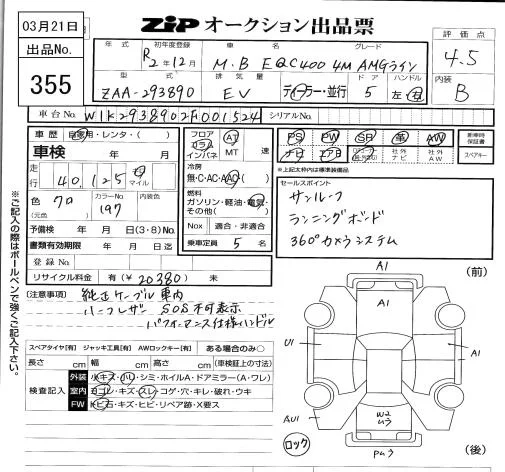 03月21日
ZIP オークション出品票
出品No.
355
年式 初年度登録 車名 グレード
R2年12月 M・B EQC400 4M AMGライン
型式 排気量 ドア ハンドル
ZAA-293890 EV ディーラー・並行 5 左・右
評価点
4.5
内装
B
車台No. W1K2938902F001524 シリアルNo.
車歴 自家用・レンタ・( )
車検 年 月
走行 40,125 マイル
色 カラーNo. 内装色
(元色) 197
予備検 年 月 日(3・8)No.
書類有効期限 年 月 日
登録No.
リサイクル料金 有(¥20380) 未
フロア
コラム AT
インパネ MT 速
冷房
無・C・AC・AAC
燃料
ガソリン・軽油・電気・
その他( )
Nox 適合・非適合
乗車定員 5 名
PS PW SR 革 AW
ナビ エアB 社外ナビ 社外AW
新車時保証書
スペアキー
※上記太枠内は標準装備品
セールスポイント
サンルーフ
ランニングボード
360°カメラシステム
〔注意事項〕 純正ケーブル車内
ハーフレザー SOS不可表示
パフォーマンス仕様ハンドル
スペアタイヤ[有] ジャッキ工具[有] AWロックキー[有] ある場合のみ○
長さ cm 幅 cm 高さ cm (車検証上の寸法)
検査記入
外装 小キズ・凹・シミ・ホイルA・ドアミラー(A・ワレ)
室内 ヨゴレ・キズ・スレ・コゲ・穴・キレ・破れ・ウキ
FW トビ石・キズ・ヒビ・リペア跡・X要ス
※ご記入の際はボールペンで強くご記入下さい。
A1 (前)
A1
U1 A1
AU1 W2
U3
ロック PU3 (後)